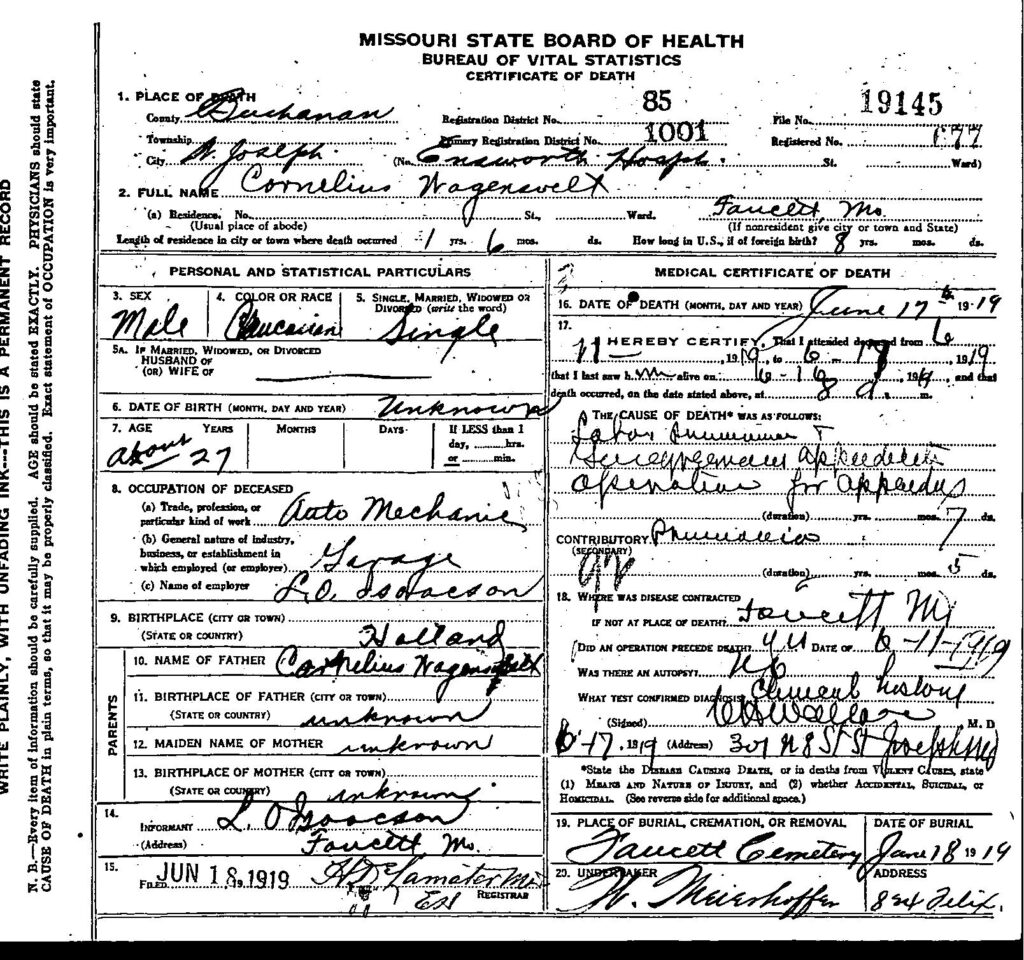 MISSOURI STATE BOARD OF HEALTH
BUREAU OF VITAL STATISTICS
CERTIFICATE OF DEATH
1. PLACE OF DEATH
County Buchanan Registration District No. 85 File No. 19145
Township Primary Registration District No. 1001 Registered No. 677
City St. Joseph (No. Ensworth Hosph. St. Ward)
2. FULL NAME Cornelius Wagensvelt
(a) Residence. No. St., Ward. Faucett, Mo.
(Usual place of abode) (If nonresident give city or town and State)
Length of residence in city or town where death occurred 1 yrs. 6 mos. ds. How long in U.S., if of foreign birth? 8 yrs. mos. ds.
PERSONAL AND STATISTICAL PARTICULARS
3. SEX 4. COLOR OR RACE 5. SINGLE, MARRIED, WIDOWED OR
DIVORCED (write the word)
Male Caucasian Single
5A. IF MARRIED, WIDOWED, OR DIVORCED
HUSBAND OF
(OR) WIFE OF
6. DATE OF BIRTH (MONTH, DAY AND YEAR) Unknown
7. AGE YEARS MONTHS DAYS If LESS than 1
day, hrs.
about 27 or min.
8. OCCUPATION OF DECEASED
(a) Trade, profession, or
particular kind of work Auto Mechanic
(b) General nature of industry,
business, or establishment in
which employed (or employer) Garage
(c) Name of employer L.O. Isaacson
9. BIRTHPLACE (CITY OR TOWN)
(STATE OR COUNTRY) Holland
PARENTS
10. NAME OF FATHER Cornelius Wagensvelt
11. BIRTHPLACE OF FATHER (CITY OR TOWN)
(STATE OR COUNTRY) unknown
12. MAIDEN NAME OF MOTHER unknown
13. BIRTHPLACE OF MOTHER (CITY OR TOWN)
(STATE OR COUNTRY) unknown
14.
INFORMANT L. O Isaacson
(Address) Faucett Mo.
15.
FILED JUN 18, 1919
REGISTRAR
MEDICAL CERTIFICATE OF DEATH
16. DATE OF DEATH (MONTH, DAY AND YEAR) June 17th 1919
17.
I HEREBY CERTIFY, That I attended deceased from 6
11 1919, to 6-17, 1919
that I last saw him alive on 6-16, 1919, and that
death occurred, on the date stated above, at 8 a. m.
THE CAUSE OF DEATH* WAS AS FOLLOWS:
Appendicitis
Operation for
(duration) yrs. mos. 7 ds.
CONTRIBUTORY Pneumonia
(SECONDARY)
(duration) yrs. mos. 5 ds.
18. WHERE WAS DISEASE CONTRACTED
IF NOT AT PLACE OF DEATH? Faucett Mo
DID AN OPERATION PRECEDE DEATH? yes DATE OF 6-11-1919
WAS THERE AN AUTOPSY? No
WHAT TEST CONFIRMED DIAGNOSIS? Clinical history
(Signed) Wallace M. D
6-17, 1919 (Address) 301 N 8 St St Joseph Mo
*State the DISEASE CAUSING DEATH, or in deaths from VIOLENT CAUSES, state
(1) MEANS AND NATURE OF INJURY, and (2) whether ACCIDENTAL, SUICIDAL, or
HOMICIDAL. (See reverse side for additional space.)
19. PLACE OF BURIAL, CREMATION, OR REMOVAL DATE OF BURIAL
Faucett Cemetery June 18 1919
20. UNDERTAKER ADDRESS
Meierhoffer 824 Felix.
WRITE PLAINLY, WITH UNFADING INK---THIS IS A PERMANENT RECORD
N. B.—Every item of information should be carefully supplied. AGE should be stated EXACTLY. PHYSICIANS should state
CAUSE OF DEATH in plain terms, so that it may be properly classified. Exact statement of OCCUPATION is very important.